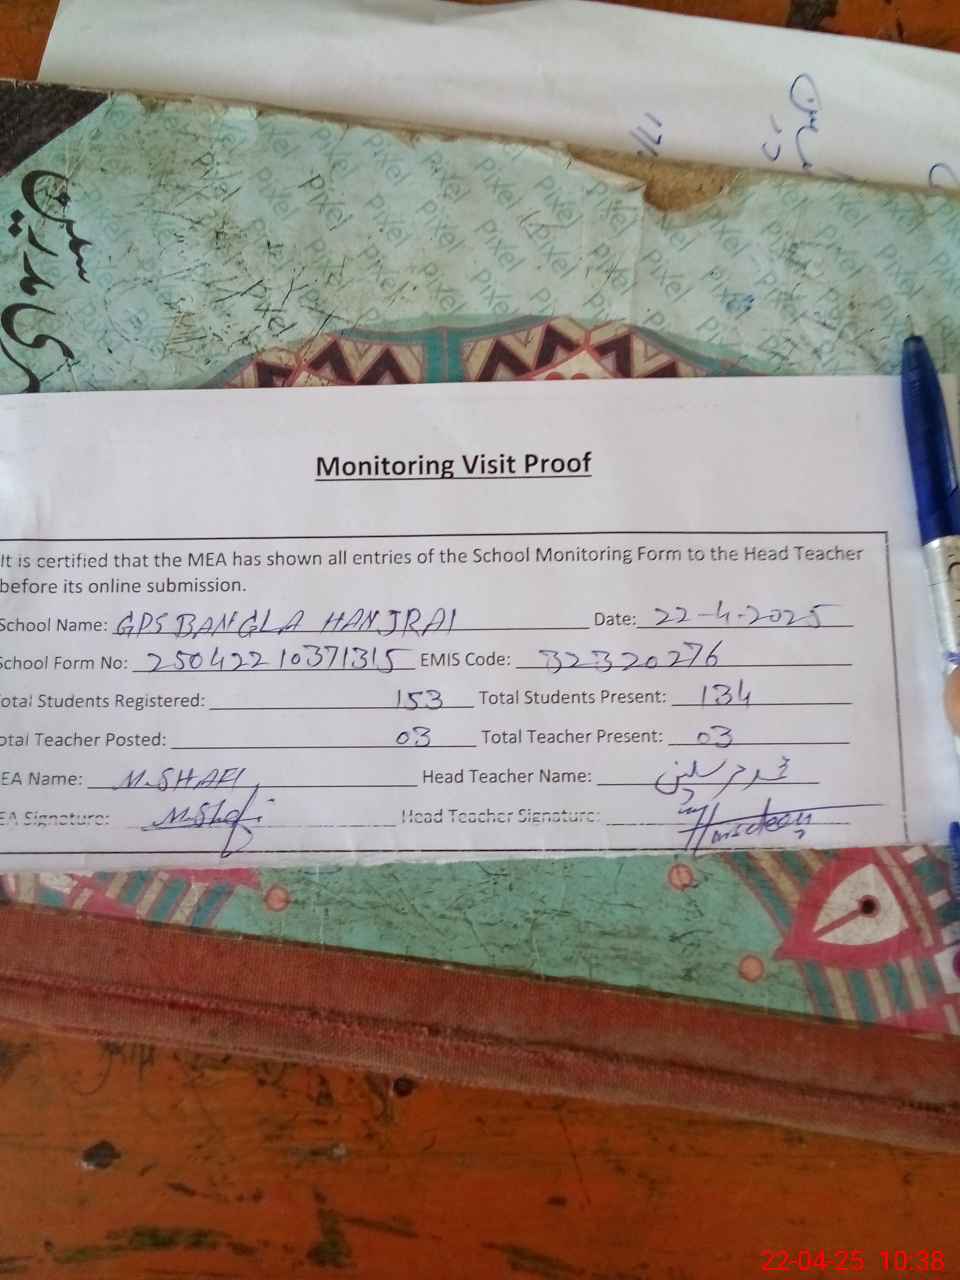 Monitoring Visit Proof
It is certified that the MEA has shown all entries of the School Monitoring Form to the Head Teacher
before its online submission.
School Name: GPS BANGLA HANJRAI Date: 22-4-2025
School Form No: 25042210371315 EMIS Code: 32320276
otal Students Registered: 153 Total Students Present: 134
otal Teacher Posted: 03 Total Teacher Present: 03
EA Name: M.SHAFI Head Teacher Name:
EA Signature: M.Shafi Head Teacher Signature:
22-04-25 10:38